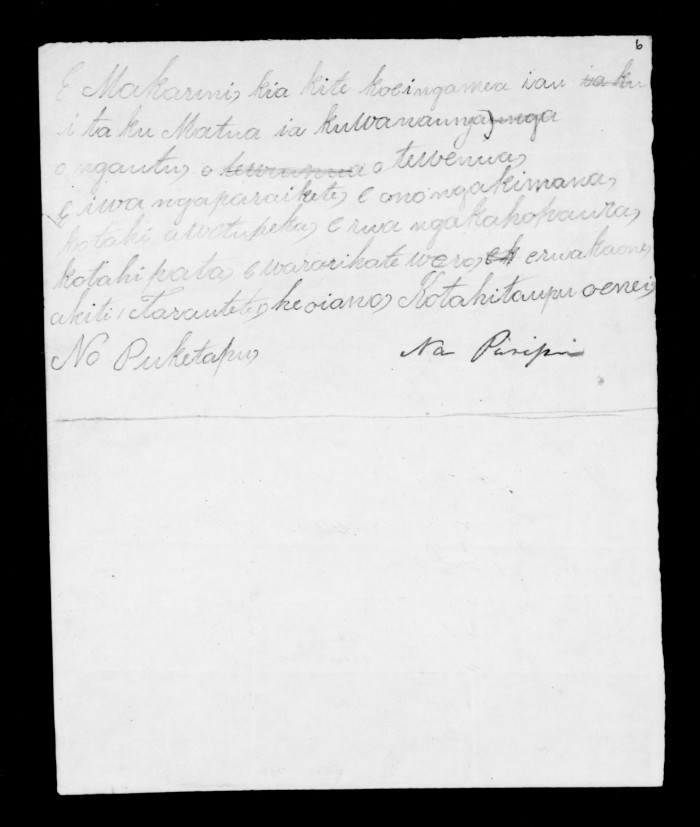 6
E Makarini, kia kite koe i ngamea i au ia ku
i ta ku Matua ia kuwanaunga) nga
o ngautu, o tewenua,
e iwa ngaparaikete, e ono ngakimana,
kotahi awotupeka, e rua ngakahopaura,
kotahi pata, e wararikate wero, erua kaone,
akiti, Tarautete, heoiano, Kotahitaupu oenei,
No Puketapu,
Na Piripi